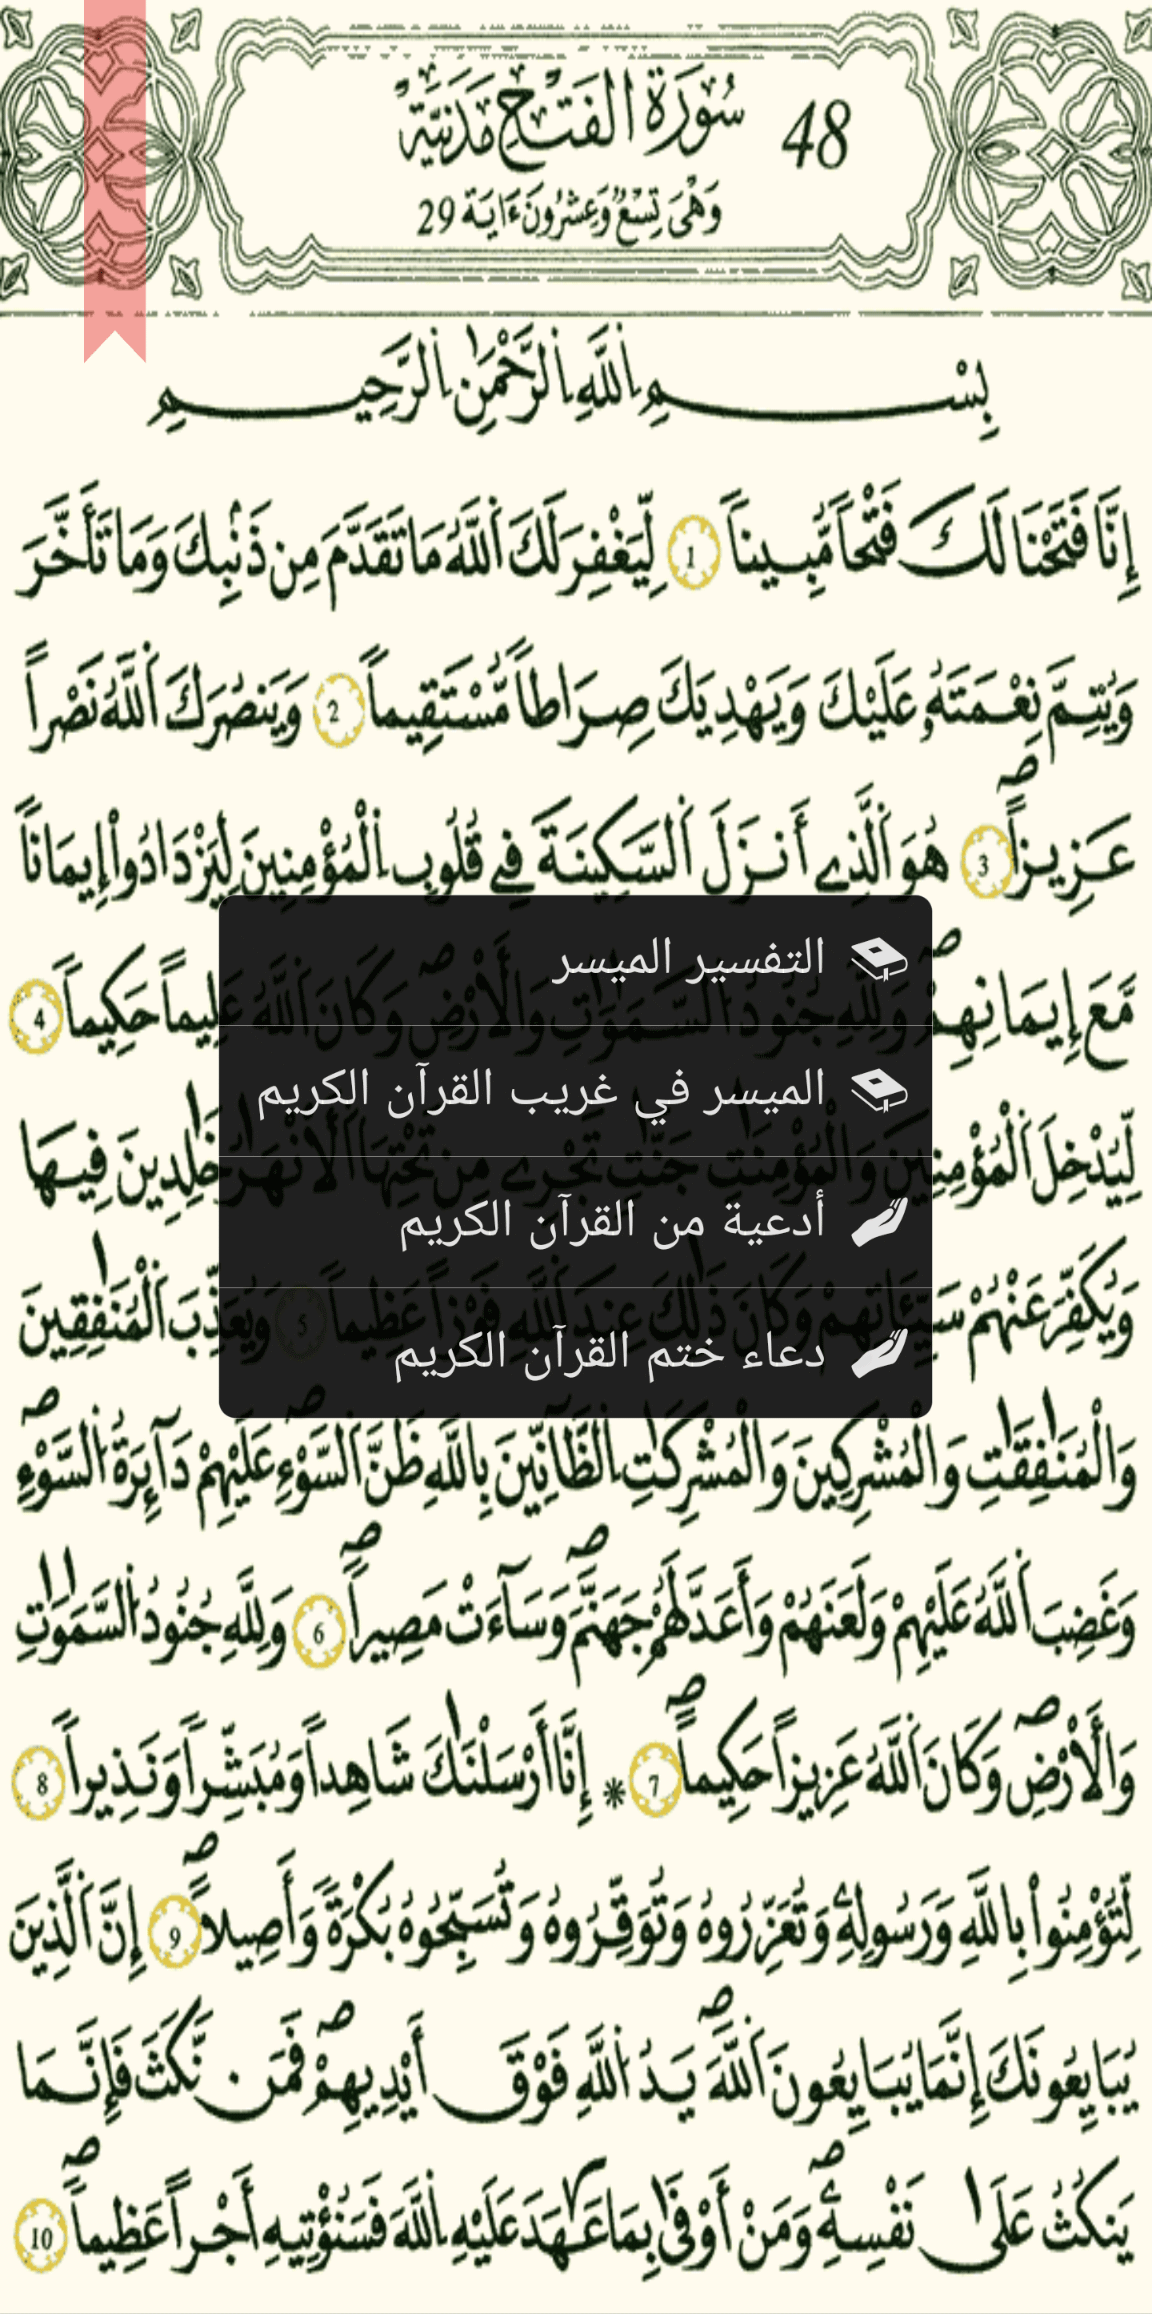 48 سُورَةُ الفَتْحِ مَدَنِيَّةٌ
وَهْيَ تِسْعٌ وَعِشْرُونَ ءَايَة 29
بِسْمِ اِ۬للَّهِ اِ۬لرَّحْمَٰنِ اِ۬لرَّحِيمِ
إِنَّا فَتَحْنَا لَكَ فَتْحاٗ مُّبِيناٗ 1 لِّيَغْفِرَ لَكَ اَ۬للَّهُ مَا تَقَدَّمَ مِن ذَنۢبِكَ وَمَا تَأَخَّرَ
وَيُتِمَّ نِعْمَتَهُۥ عَلَيْكَ وَيَهْدِيَكَ صِرَاطاٗ مُّسْتَقِيماٗ 2 وَيَنصُرَكَ اَ۬للَّهُ نَصْراً
عَزِيزاًۖ 3 هُوَ اَ۬لذِے أَنزَلَ اَ۬لسَّكِينَةَ فِے قُلُوبِ اِ۬لْمُؤْمِنِينَ لِيَزْدَادُواْ إِيمَاناٗ
مَّعَ إِيمَانِهِمْۖ وَلِلهِ جُنُودُ اُ۬لسَّمَٰوَٰتِ وَالْأَرْضِۖ وَكَانَ اَ۬للَّهُ عَلِيماً حَكِيماٗ 4
لِّيُدْخِلَ اَ۬لْمُؤْمِنِينَ وَالْمُؤْمِنَٰتِ جَنَّٰتٖ تَجْرِے مِن تَحْتِهَا اَ۬لْأَنْهَٰرُ خَٰلِدِينَ فِيهَا
وَيُكَفِّرَ عَنْهُمْ سَيِّـَٔاتِهِمْ وَكَانَ ذَٰلِكَ عِندَ اَ۬للَّهِ فَوْزاً عَظِيماٗ 5 وَيُعَذِّبَ اَ۬لْمُنَٰفِقِينَ
وَالْمُنَٰفِقَٰتِ وَالْمُشْرِكِينَ وَالْمُشْرِكَٰتِ اِ۬لظَّآنِّينَ بِاللَّهِ ظَنَّ اَ۬لسَّوْءِۖ عَلَيْهِمْ دَآئِرَةُ اُ۬لسَّوْءِۖ
وَغَضِبَ اَ۬للَّهُ عَلَيْهِمْ وَلَعَنَهُمْ وَأَعَدَّ لَهُمْ جَهَنَّمَۖ وَسَآءَتْ مَصِيراٗۖ 6 وَلِلهِ جُنُودُ اُ۬لسَّمَٰوَٰتِ
وَالْأَرْضِۖ وَكَانَ اَ۬للَّهُ عَزِيزاً حَكِيماًۖ 7 * إِنَّا أَرْسَلْنَٰكَ شَاهِداٗ وَمُبَشِّراٗ وَنَذِيراٗ 8
لِّتُؤْمِنُواْ بِاللَّهِ وَرَسُولِهِۦ وَتُعَزِّرُوهُ وَتُوَقِّرُوهُ وَتُسَبِّحُوهُ بُكْرَةٗ وَأَصِيلاًۖ 9 إِنَّ اَ۬لذِينَ
يُبَايِعُونَكَ إِنَّمَا يُبَايِعُونَ اَ۬للَّهَۖ يَدُ اُ۬للَّهِ فَوْقَ أَيْدِيهِمْۖ فَمَن نَّكَثَ فَإِنَّمَا
يَنكُثُ عَلَىٰ نَفْسِهِۦۖ وَمَنْ أَوْفَىٰ بِمَا عَٰهَدَ عَلَيْهِ اِ۬للَّهَ فَسَنُؤْتِيهِ أَجْراً عَظِيماٗۖ 10
التفسير الميسر
الميسر في غريب القرآن الكريم
أدعية من القرآن الكريم
دعاء ختم القرآن الكريم